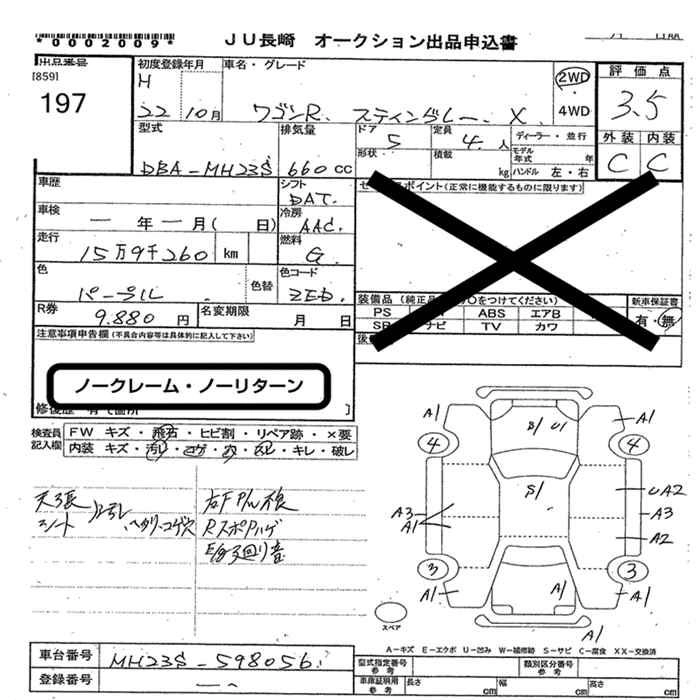 *0002009*
JU長崎 オークション出品申込書
出品番号
[859]
197
初度登録年月
H
22 10月
車名・グレード
ワゴンR. スティングレー. X.
2WD
・
4WD
評価点
3.5
外装 内装
C C
型式
DBA-MH23S
排気量
660cc
ドア
5
形状
定員
4. 人
積載
kg
ディーラー・並行
モデル年式 年
ハンドル 左・右
車歴
シフト
DAT.
車検
― 年 ― 月( 日)
冷房
AAC.
走行
15万9千260 km
燃料
G.
色
パープル
色替
色コード
ZED.
R券
9.880 円
名変期限
月 日
ポイント(正常に機能するものに限ります)
装備品
○をつけてください)
PS
ABS
エアB
ナビ
TV
カワ
新車保証書
有・無
注意事項申告欄(不具合内容等は具体的に記入して下さい)
ノークレーム・ノーリターン
検査員記入欄
FW キズ・飛石・ヒビ割・リペア跡・×要
内装 キズ・汚レ・コゲ・穴・スレ・キレ・破レ
天張
シート
汚レ
ヘタリ・コゲ穴
RスポPハゲ
A1
4
A1
4
B1
U1
S1
A3
A1
UA2
A3
A2
3
A1
3
A1
A1
A1
スペア
A-キズ E-エクボ U-凹み W-補修跡 S-サビ C-腐食 XX-交換済
車台番号
MH23S-598056
登録番号
型式指定番号
参考
類別区分番号
参考
車庫証明用
参考
長さ cm
幅 cm
高さ cm